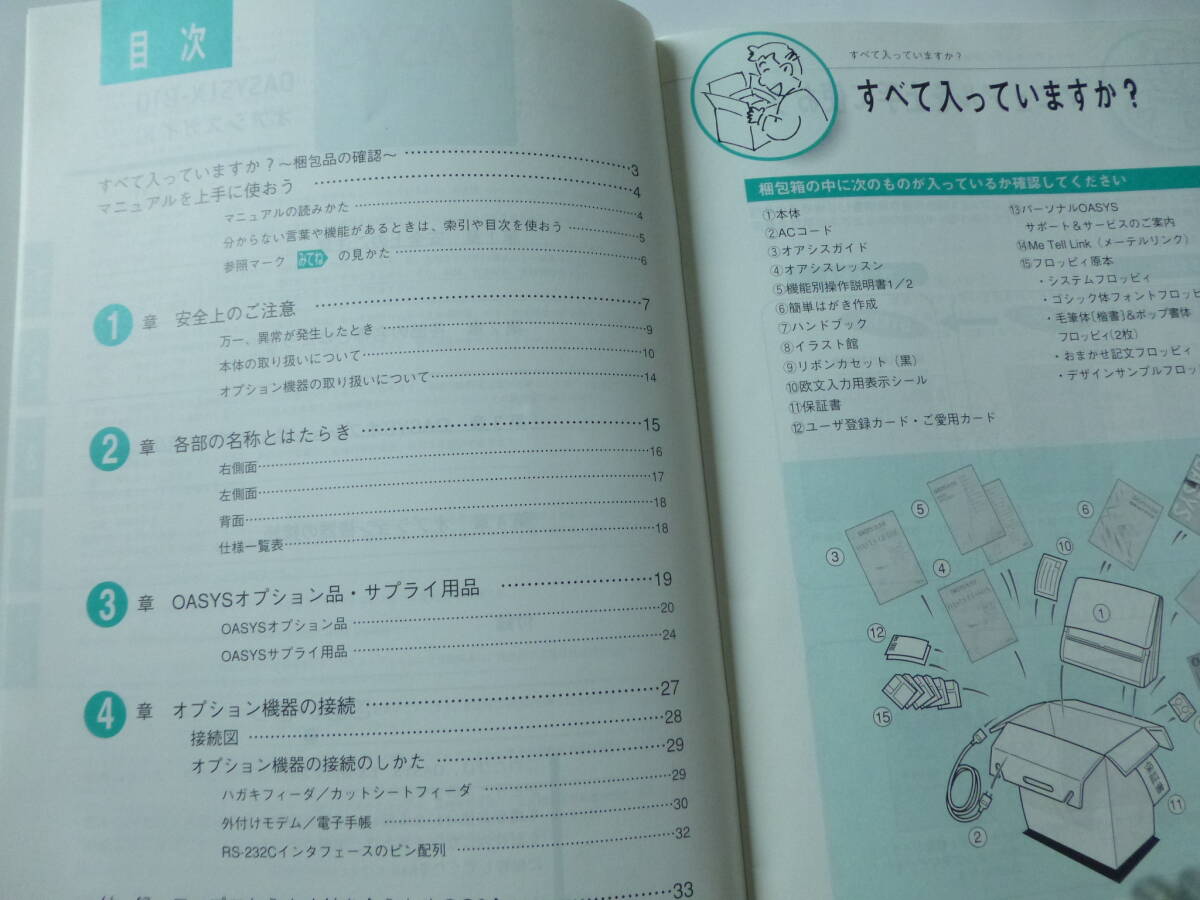 目次
すべて入っていますか？～梱包品の確認～ 3
マニュアルを上手に使おう 4
マニュアルの読みかた 4
分からない言葉や機能があるときは、索引や目次を使おう 5
参照マーク みてね の見かた 6
1 章 安全上のご注意 7
万一、異常が発生したとき 9
本体の取り扱いについて 10
オプション機器の取り扱いについて 14
2 章 各部の名称とはたらき 15
右側面 16
左側面 17
背面 18
仕様一覧表 18
3 章 OASYSオプション品・サプライ用品 19
OASYSオプション品 20
OASYSサプライ用品 24
4 章 オプション機器の接続 27
接続図 28
オプション機器の接続のしかた 29
ハガキフィーダ／カットシートフィーダ 29
外付けモデム／電子手帳 30
RS-232Cインタフェースのピン配列 32
33
すべて入っていますか？
すべて入っていますか？
梱包箱の中に次のものが入っているか確認してください
①本体
②ACコード
③オアシスガイド
④オアシスレッスン
⑤機能別操作説明書1／2
⑥簡単はがき作成
⑦ハンドブック
⑧イラスト館
⑨リボンカセット（黒）
⑩欧文入力用表示シール
⑪保証書
⑫ユーザ登録カード・ご愛用カード
⑬パーソナルOASYS
サポート＆サービスのご案内
⑭Me Tell Link（メーテルリンク）
⑮フロッピィ原本
・システムフロッピィ
・ゴシック体フォントフロッピ
・毛筆体{楷書}＆ポップ書体
フロッピィ(2枚)
・おまかせ記文フロッピィ
・デザインサンプルフロッ
⑤
⑥
③
④
⑩
①
⑫
⑮
②
保証書
⑪